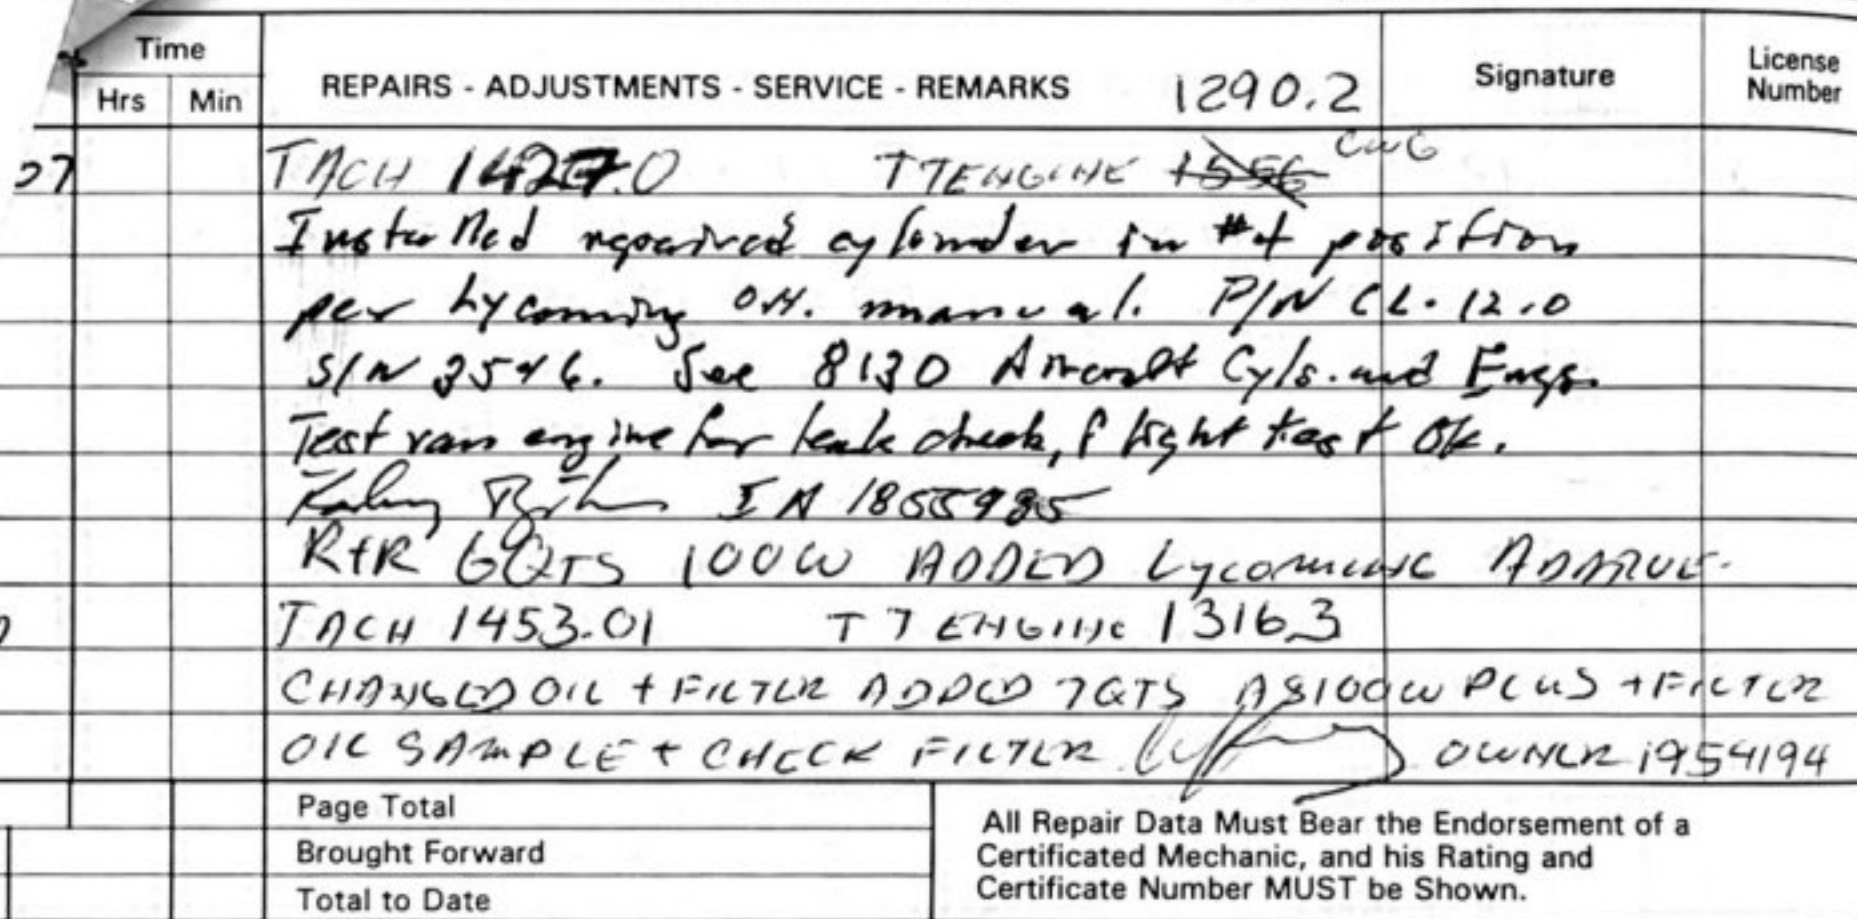 Time
Hrs Min REPAIRS - ADJUSTMENTS - SERVICE - REMARKS 1290.2 Signature License Number
07 TACH 1427.0 TT ENGINE 1556 CWG
Installed repaired cylinder in #4 position
per Lycoming O.H. manual. P/N CL-12.0
S/N 3546. See 8130 Aircraft Cyls. and Engs.
Test ran engine for leak check, flight test OK.
IA 1855985
R+R 6QTS 100W ADDED Lycoming
TACH 1453.01 TT ENGINE 1316.3
CHANGED OIL + FILTER ADDED 7QTS AS100W PLUS + FILTER
OIL SAMPLE + CHECK FILTER OWNER 1954194
Page Total
Brought Forward
Total to Date
All Repair Data Must Bear the Endorsement of a
Certificated Mechanic, and his Rating and
Certificate Number MUST be Shown.